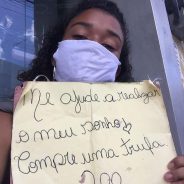 Me ajude a realizar
o meu sonho
Compre uma trufa
2,00